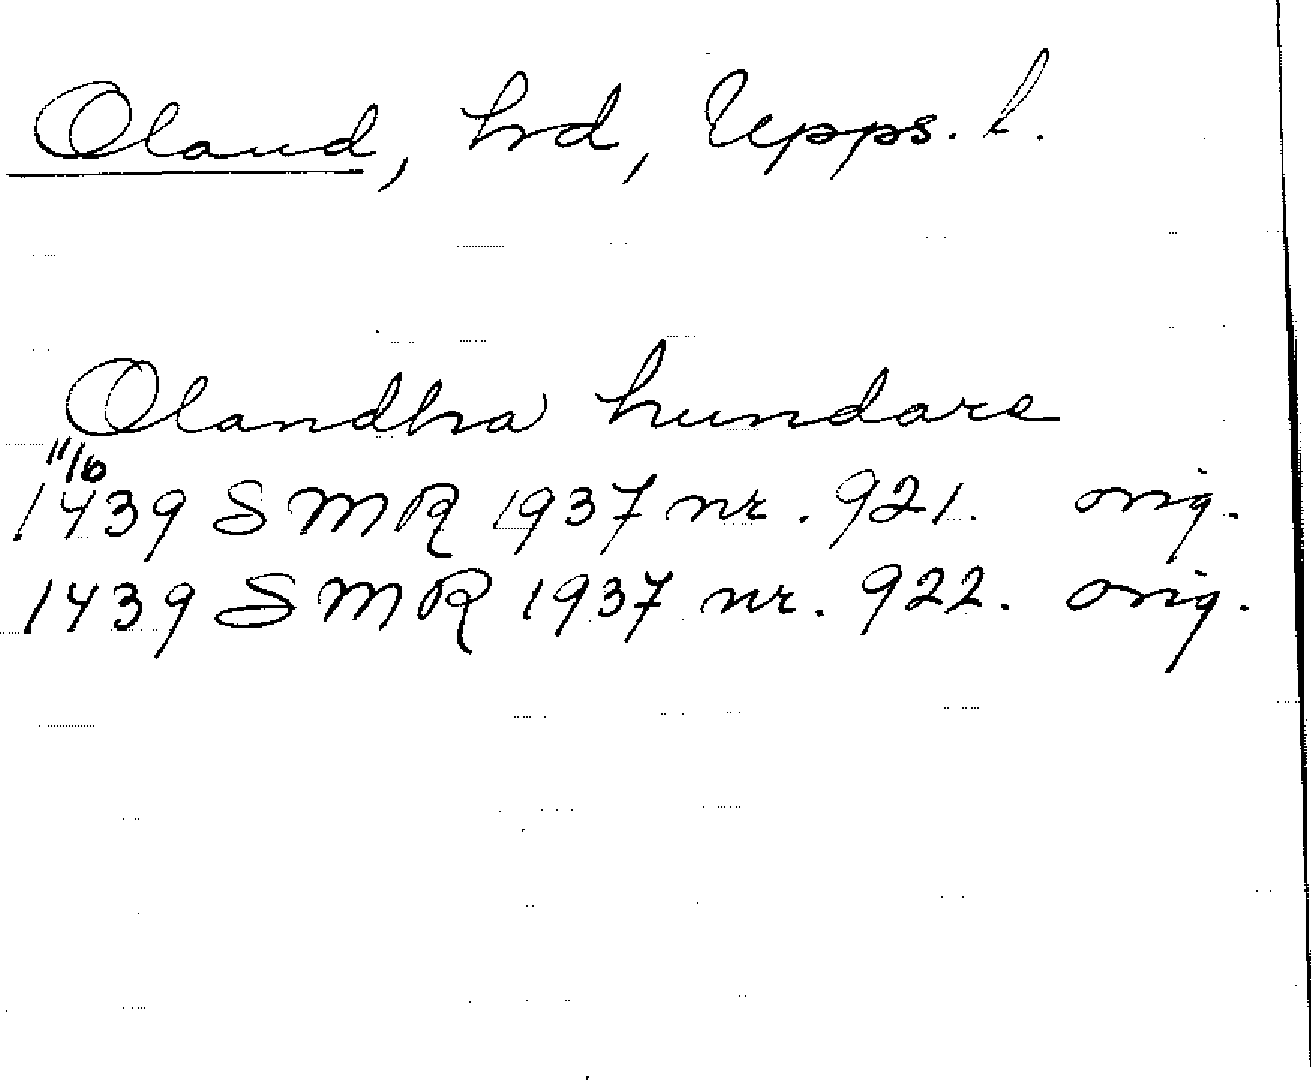 Oland, hd, Upps. l.
Olandha hundare
11/6
1439 SMR 1937 nr. 921. orig.
1439 SMR 1937 nr. 922. orig.